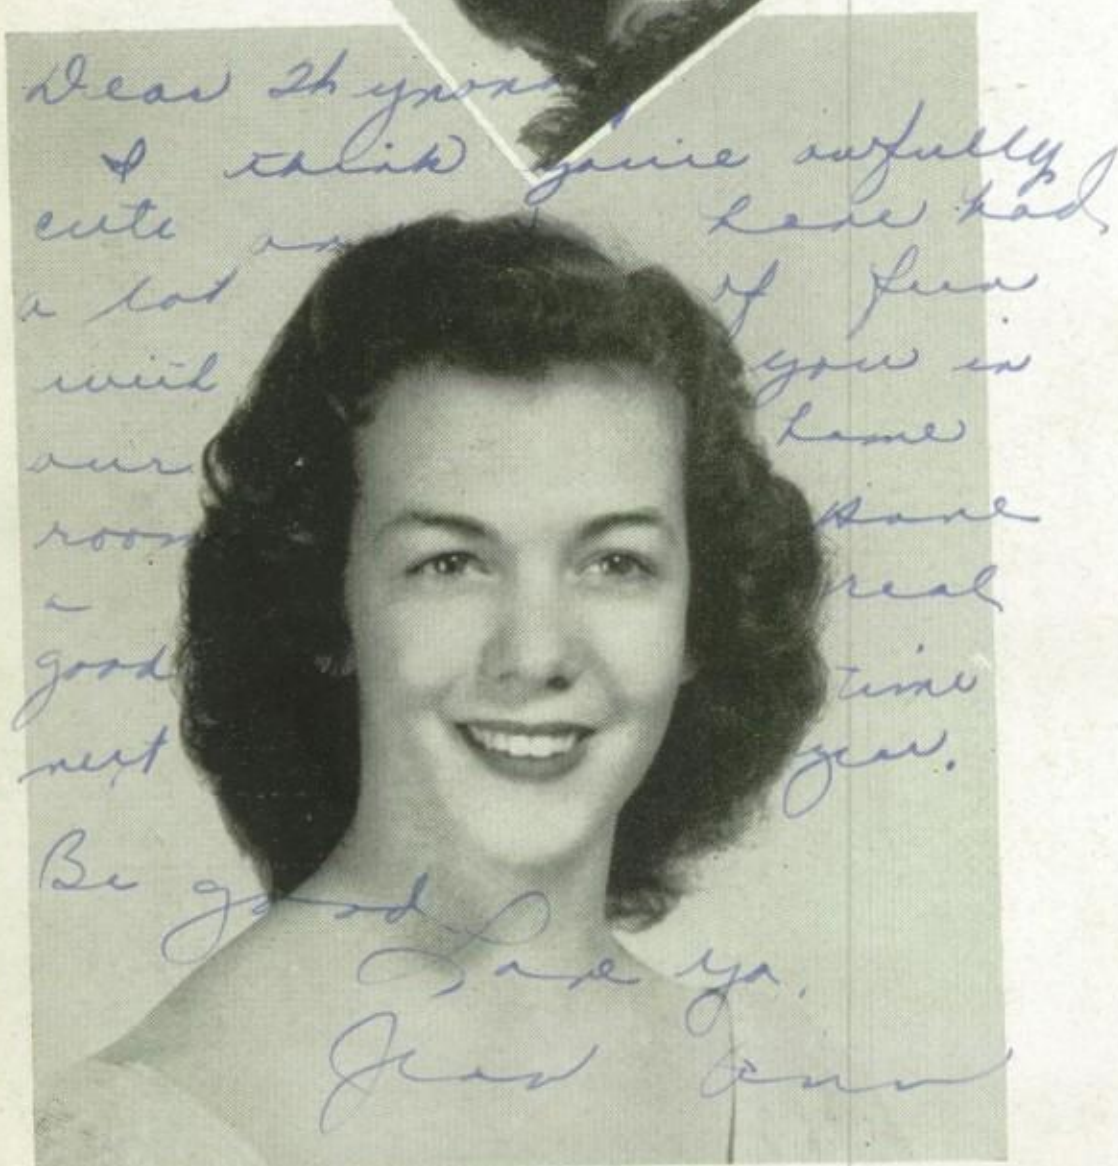 Dear
I think you're awfully
cute and have had
a lot of fun
with you in
our home
room Have
a real
good time
next year.
Be good.
Love ya,
Jean Ann